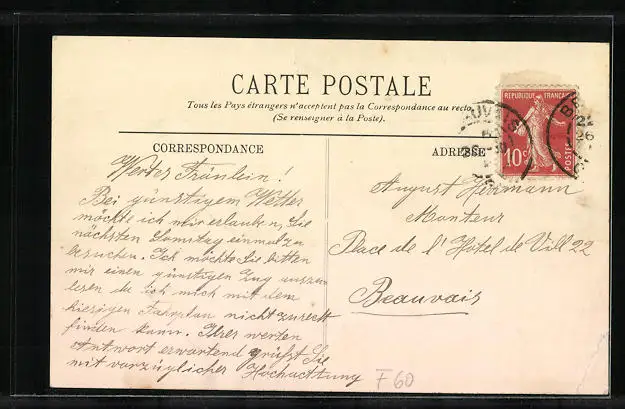 CARTE POSTALE
Tous les Pays étrangers n'acceptent pas la Correspondance au recto
(Se renseigner à la Poste).
CORRESPONDANCE
ADRESSE
REPUBLIQUE FRANÇAISE
10c
POSTES
Wertes Fräulein!
Bei günstigem Wetter
möchte ich mir erlauben, Sie
nächsten Samstag einmal zu
besuchen. Ich möchte Sie bitten
mir einen günstigen Zug auszu
lesen da ich mich mit dem
hiesigen Fahrplan nicht zurecht
finden kann. Ihrer werten
Antwort erwartend grüßt Sie
mit vorzüglicher Hochachtung
August Herrmann
Monteur
Place de l'Hôtel de Vill 22
Beauvais
F60